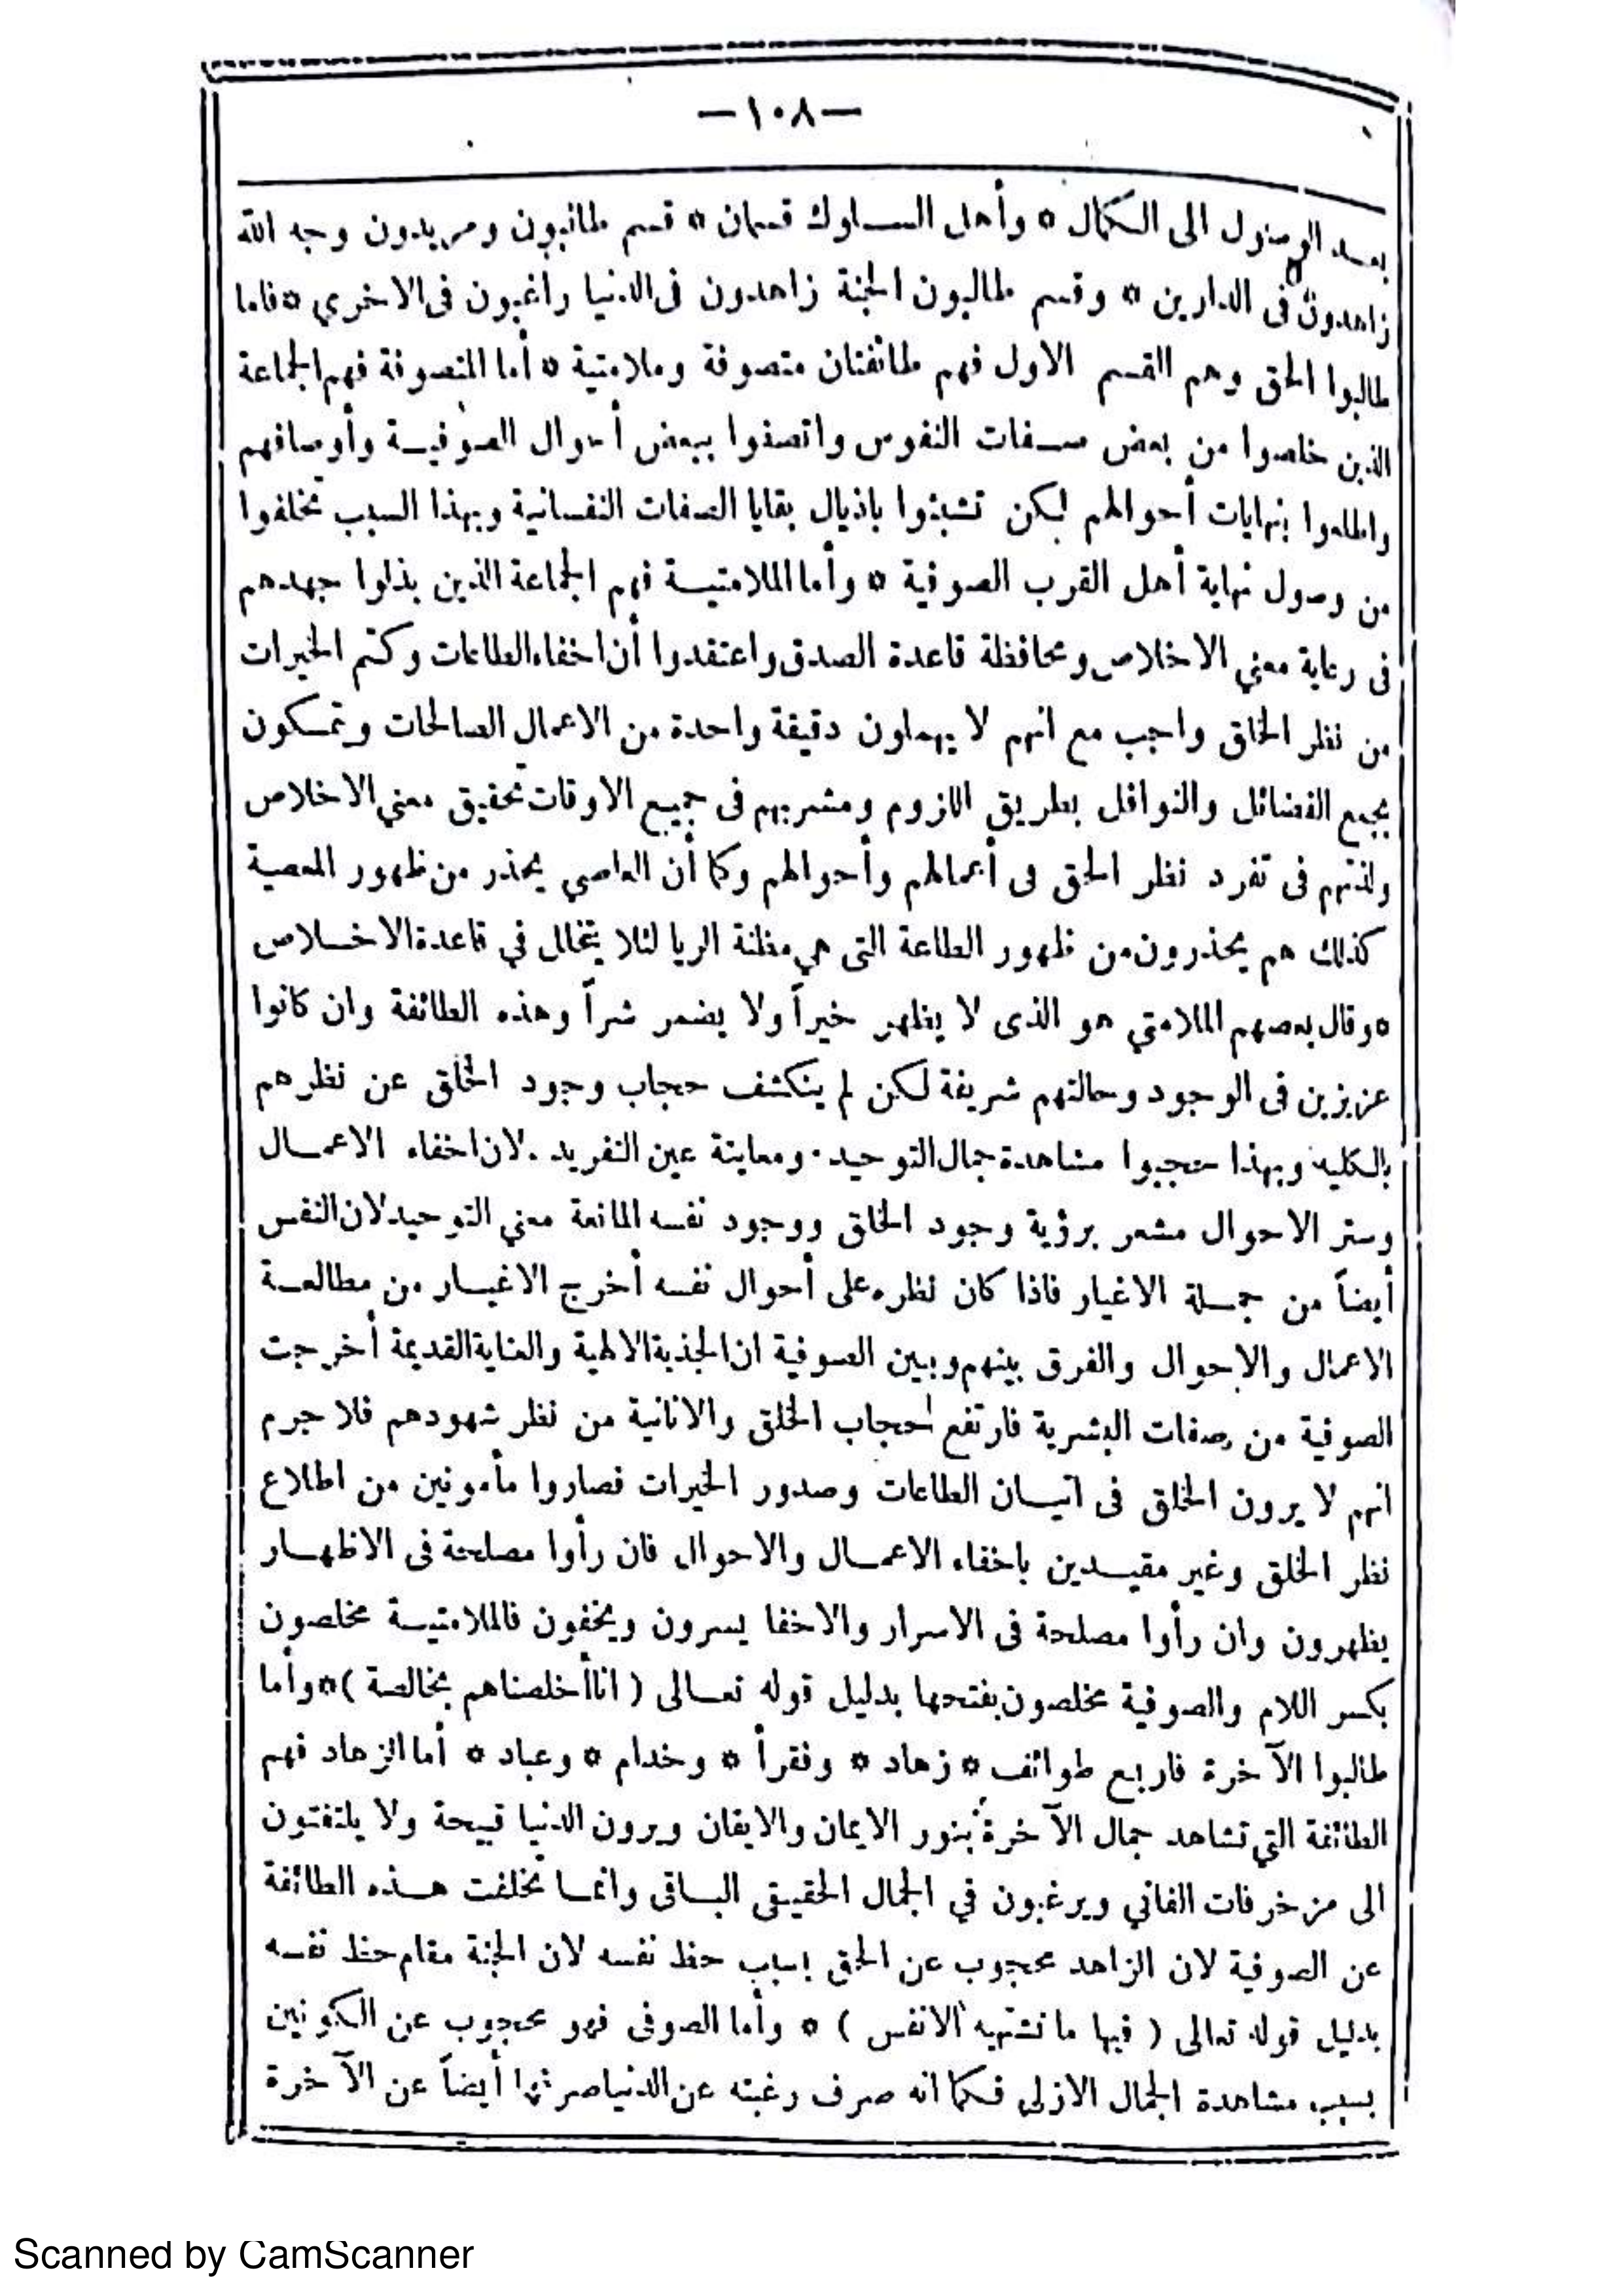 —١٠٨—
بعد الوصول الى الكمال * وأهل السلوك قسمان * قسم طالبون ومريدون وجه الله
زاهدون فى الدارين * وقسم طالبون الجنة زاهدون فى الدنيا راغبون فى الاخري * فاما
طالبوا الحق وهم القسم الاول فهم طائفتان متصوفة وملامتية * أما المتصوفة فهم الجماعة
الذين خلصوا من بعض صفات النفوس واتصفوا ببعض أحوال الصوفية وأوصافهم
واطلعوا بنهايات أحوالهم لكن تشبثوا باذيال بقايا الصفات النفسانية وبهذا السبب تخلفوا
من وصول نهاية أهل القرب الصوفية * وأما الملامتية فهم الجماعة الذين بذلوا جهدهم
فى رعاية معني الاخلاص ومحافظة قاعدة الصدق واعتقدوا أن اخفاء الطاعات وكتم الخيرات
من نظر الخلق واجب مع انهم لا يهملون دقيقة واحدة من الاعمال الصالحات وتمسكون
بجميع الفضائل والنوافل بطريق اللزوم ومشربهم فى جميع الاوقات تحقيق معني الاخلاص
ولذتهم فى تفرد نظر الحق فى أعمالهم وأحوالهم وكما أن العاصي يحذر من ظهور المعصية
كذلك هم يحذرون من ظهور الطاعة التى هي مظنة الريا لئلا يتخلل في قاعدة الاخلاص
* وقال بعضهم الملامتي هو الذى لا يظهر خيراً ولا يضمر شراً وهذه الطائفة وان كانوا
عزيزين فى الوجود وحالتهم شريفة لكن لم ينكشف حجاب وجود الخلق عن نظرهم
بالكليه وبهذا حجبوا مشاهدة جمال التوحيد . ومعاينة عين التفريد . لان اخفاء الاعمال
وستر الاحوال مشعر برؤية وجود الخلق ووجود نفسه المانعة معني التوحيد لان النفس
أيضاً من جملة الاغيار فاذا كان نظره على أحوال نفسه أخرج الاغيار من مطالعة
الاعمال والاحوال والفرق بينهم وبين الصوفية ان الجذبة الالهية والعناية القديمة أخرجت
الصوفية من صفات البشرية فارتفع حجاب الخلق والانانية من نظر شهودهم فلا جرم
انهم لا يرون الخلق فى اتيان الطاعات وصدور الخيرات فصاروا مأمونين من اطلاع
نظر الخلق وغير مقيدين باخفاء الاعمال والاحوال فان رأوا مصلحة فى الاظهار
يظهرون وان رأوا مصلحة فى الاسرار والاخفا يسرون ويخفون فالملامتية مخلصون
بكسر اللام والصوفية مخلصون بفتحها بدليل قوله تعالى ( انا أخلصناهم بخالصة ) * وأما
طالبوا الآخرة فاربع طوائف * زهاد * وفقرأ * وخدام * وعباد * أما الزهاد فهم
الطائفة التي تشاهد جمال الآخرة بنور الايمان والايقان ويرون الدنيا قبيحة ولا يلتفتون
الى مزخرفات الفاني ويرغبون في الجمال الحقيقى الباقى وانما تخلفت هذه الطائفة
عن الصوفية لان الزاهد محجوب عن الحق بسبب حظ نفسه لان الجنة مقام حظ نفسه
بدليل قوله تعالى ( فيها ما تشتهيه الانفس ) * وأما الصوفى فهو محجوب عن الكونين
بسبب مشاهدة الجمال الازلى فكما انه صرف رغبته عن الدنيا صرفها أيضاً عن الآخرة
Scanned by CamScanner